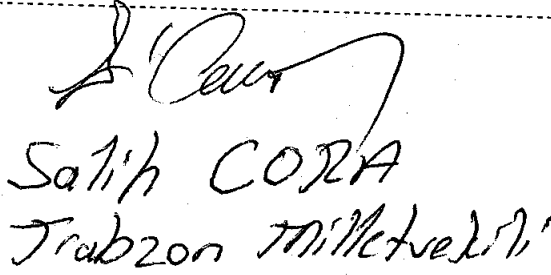 Salih CORA
Trabzon Milletvekili